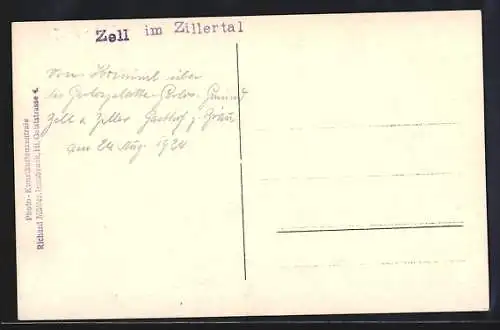 Zell im Zillertal
Von Krimml über
die Gerlosplatte - Gerlos - Gmünd
Zell a. Ziller Gasthof z. Bräu
am 24 Aug. 1924
Photo-Kunstkartenzentrale
Richard Müller, Innsbruck, Hl. Geiststrasse 4.